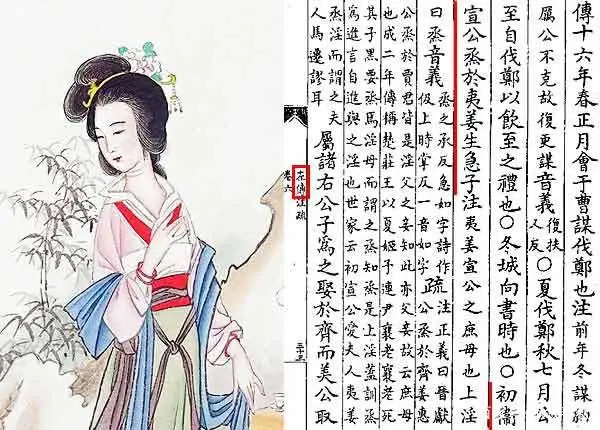 傳十六年春正月會于曹謀伐鄭也注前年冬謀納
厲公不克故復更謀音義復扶又反○夏伐鄭秋七月公
至自伐鄭以飲至之禮也○冬城向書時也○初衞
宣公烝於夷姜生急子注夷姜宣公之庶母也上淫
曰烝音義烝之承反急如字詩作伋上時掌反一音如字疏注正義曰晉獻公烝於齊姜惠
公烝於賈君皆是淫父之妾知此亦父妾故云庶母
也成二年傳稱楚莊王以夏姬予連尹襄老襄老死
其子黑要烝焉淫母而謂之烝知烝是上淫蓋訓烝
為進言自進與之淫也世家云初宣公愛夫人夷姜
烝淫而謂之夫人馬遷謬耳屬諸右公子為之娶於齊而美公取
左傳注疏
卷六